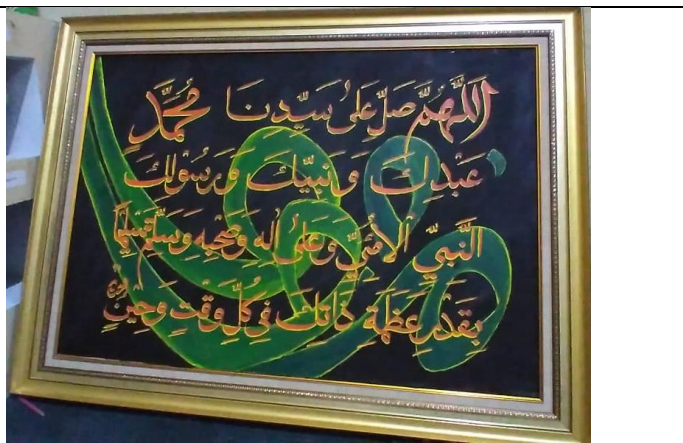 اَللّٰهُمَّ صَلِّ عَلٰى سَيِّدِنَا مُحَمَّدٍ
عَبْدِكَ وَنَبِيِّكَ وَرَسُوْلِكَ
النَّبِيِّ الْأُمِّيِّ وَعَلٰى اٰلِهِ وَصَحْبِهِ وَسَلِّمْ تَسْلِيْمًا
بِقَدْرِ عَظَمَةِ ذَاتِكَ فِيْ كُلِّ وَقْتٍ وَحِيْنٍ